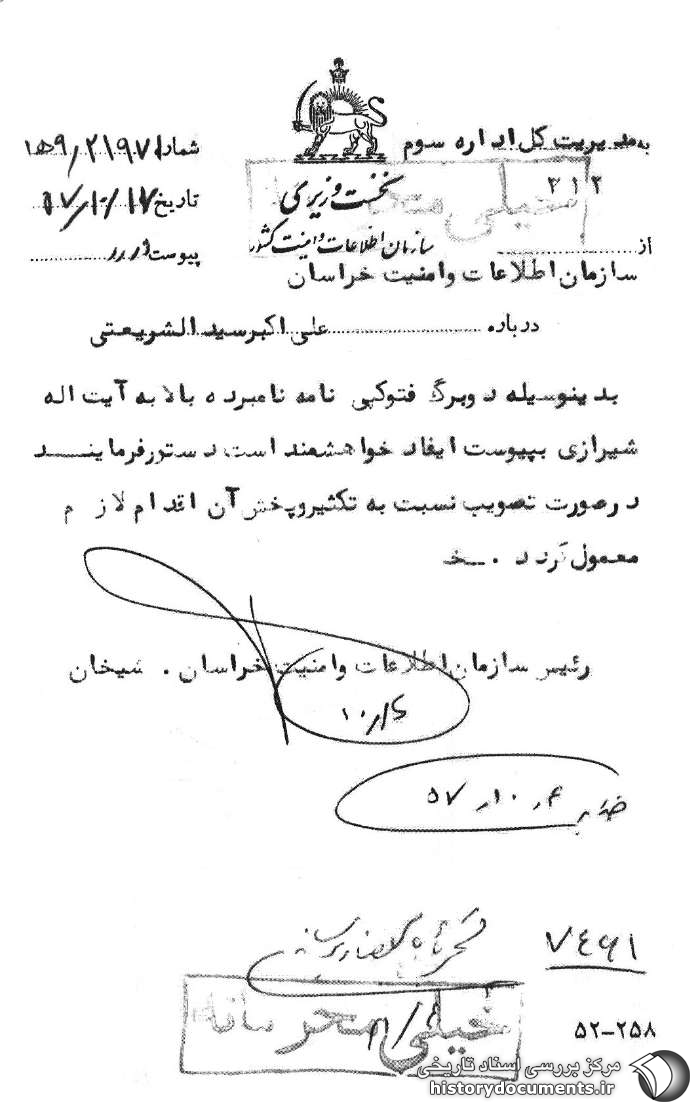 به مدیریت کل اداره سوم
۳۱۲
شماره
تاریخ
پیوست
نخست وزیری
سازمان اطلاعات و امنیت کشور
از
سازمان اطلاعات وامنیت خراسان
درباره علی اکبر سید الشریعتی
بدینوسیله دوبرگ فتوکپی نامه نامبرده بالا به آیت اله
شیرازی بپیوست ایفاد خواهشمند است دستور فرمایند
در صورت تصویب نسبت به تکثیر و پخش آن اقدام لازم
معمول گردد . خ
رئیس سازمان اطلاعات وامنیت خراسان . شیخان
۱۰/۶
۵۷
۷۴۶۱
خیلی محرمانه
۵۲-۲۵۸
مرکز بررسی اسناد تاریخی
historydocuments.ir